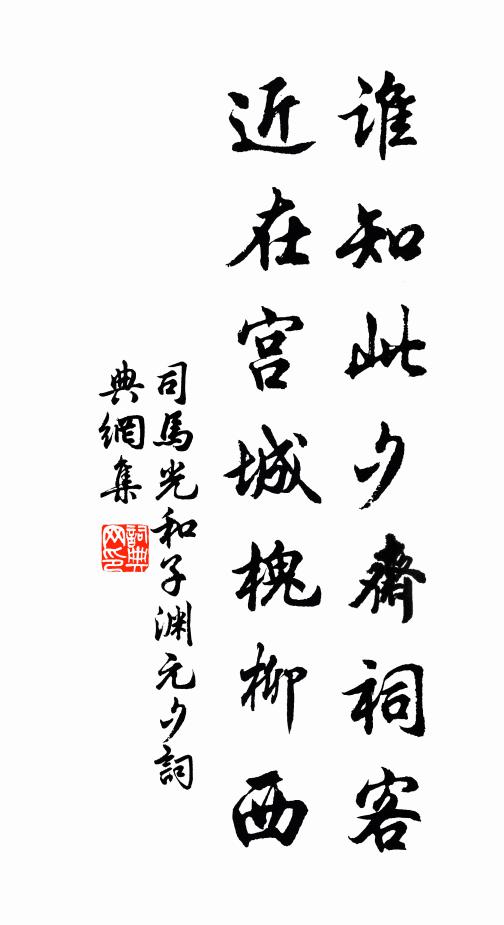 谁知此夕齋祠客
近在宫城槐柳西
司馬光和子渊元夕詞
典網集
詞典
网印